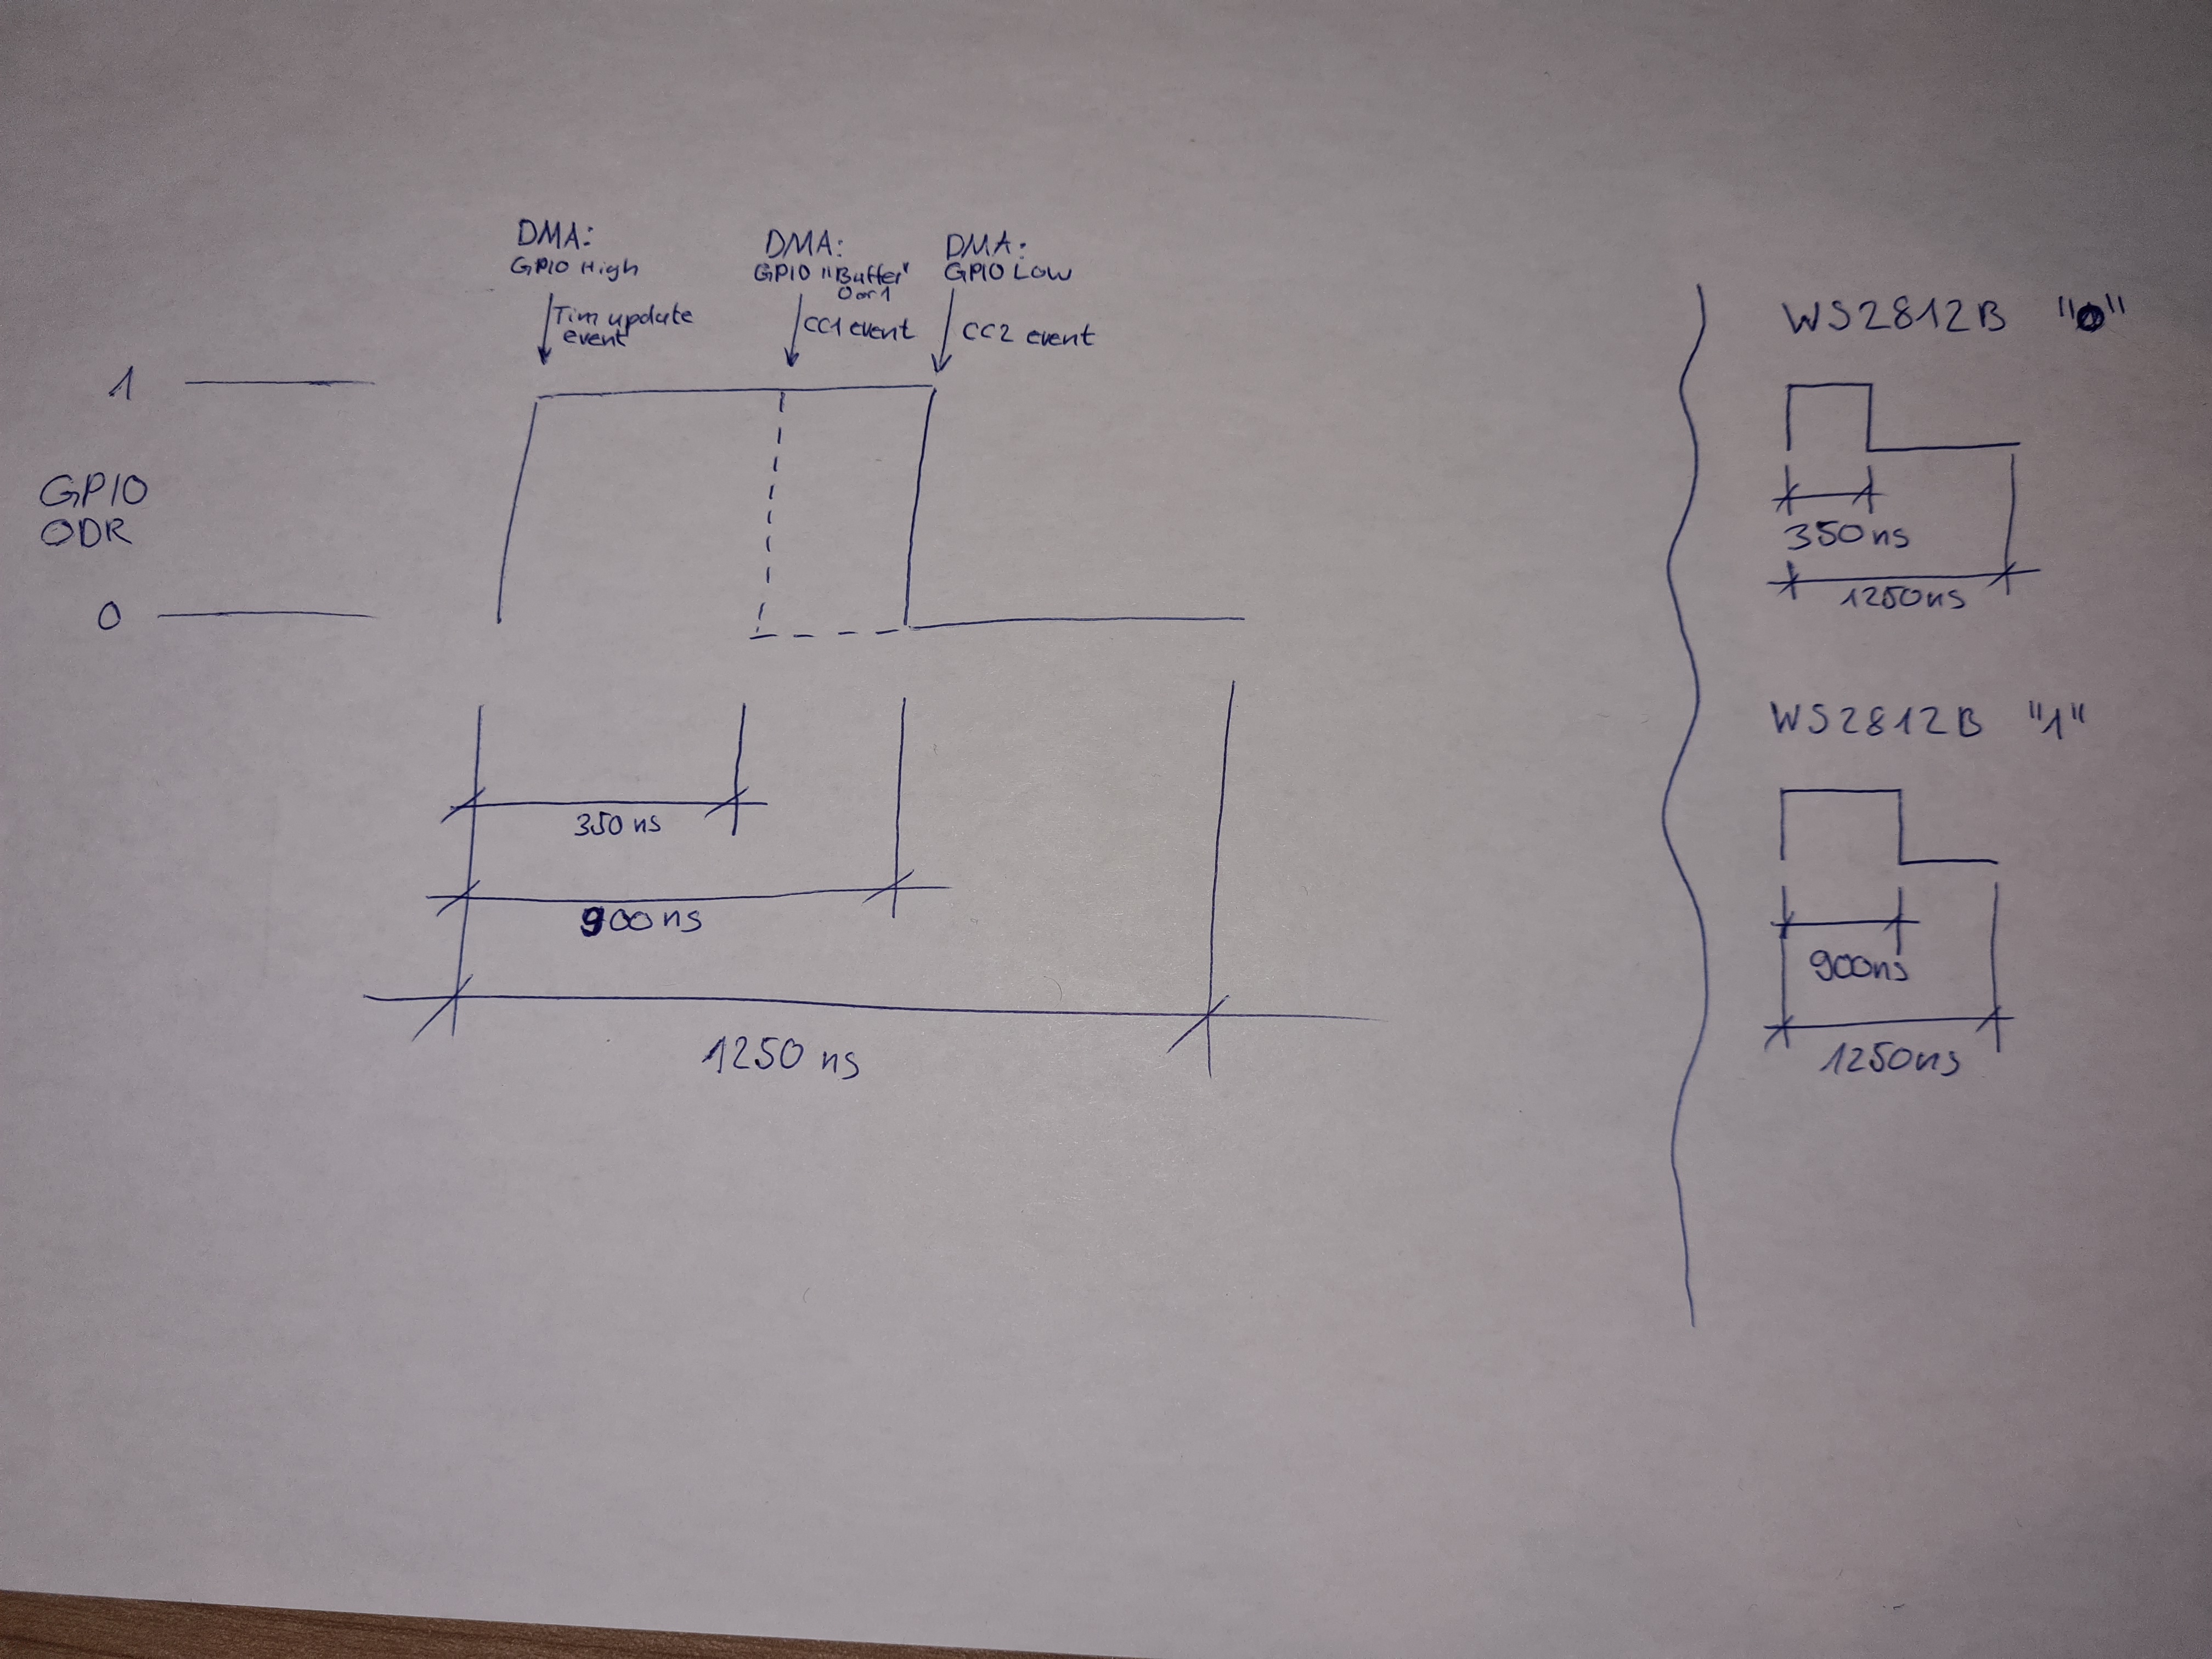 DMA:
GPIO High
Tim update
event
DMA:
GPIO "Buffer"
0 or 1
CC1 event
DMA:
GPIO Low
CC2 event
1
GPIO
ODR
0
350 ns
900 ns
1250 ns
WS2812B "0"
350ns
1250ns
WS2812B "1"
900ns
1250ns